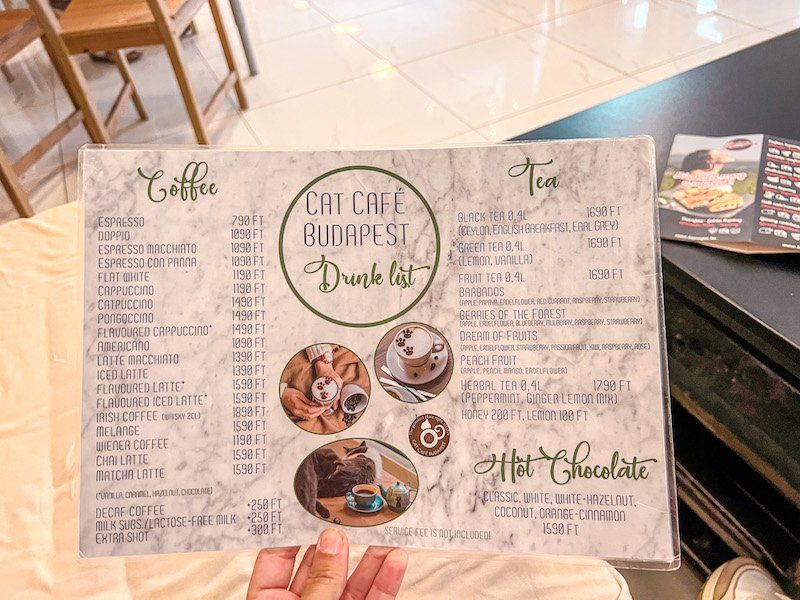 Coffee
ESPRESSO 790 FT
DOPPIO 1090 FT
ESPRESSO MACCHIATO 1090 FT
ESPRESSO CON PANNA 1090 FT
FLAT WHITE 1190 FT
CAPPUCCINO 1190 FT
CATPUCCINO 1490 FT
PONGOCCINO 1490 FT
FLAVOURED CAPPUCCINO* 1490 FT
AMERICANO 1090 FT
LATTE MACCHIATO 1390 FT
ICED LATTE 1390 FT
FLAVOURED LATTE* 1590 FT
FLAVOURED ICED LATTE* 1590 FT
IRISH COFFEE (WHISKY 2CL) 1890 FT
MELANGE 1590 FT
WIENER COFFEE 1190 FT
CHAI LATTE 1590 FT
MATCHA LATTE 1590 FT
(*VANILLA, CARAMEL, HAZELNUT, CHOCOLATE)
DECAF COFFEE +250 FT
MILK SUBS./LACTOSE-FREE MILK +250 FT
EXTRA SHOT +300 FT
CAT CAFÉ
BUDAPEST
Drink list
SERVICE FEE IS NOT INCLUDED!
Tea
BLACK TEA 0,4L 1690 FT
(CEYLON, ENGLISH BREAKFAST, EARL GREY)
GREEN TEA 0,4L 1690 FT
(LEMON, VANILLA)
FRUIT TEA 0,4L 1690 FT
BARBADOS
(APPLE, PAPAYA, ELDELFLOWER, RED CURRANT, RASPBERRY, STRAWBERRY)
BERRIES OF THE FOREST
(APPLE, ELDELFLOWER, BLUEBERRY, MULBERRY, RASPBERRY, STRAWBERRY)
DREAM OF FRUITS
(APPLE, ELDELFLOWER, STRAWBERRY, PASSIONFRUIT, KIWI, RASPBERRY, ROSE)
PEACH FRUIT
(APPLE, PEACH, MANGO, ELDELFLOWER)
HERBAL TEA 0,4L 1790 FT
(PEPPERMINT, GINGER LEMON MIX)
HONEY 200 FT, LEMON 100 FT
Hot Chocolate
CLASSIC, WHITE, WHITE-HAZELNUT,
COCONUT, ORANGE-CINNAMON
1590 FT